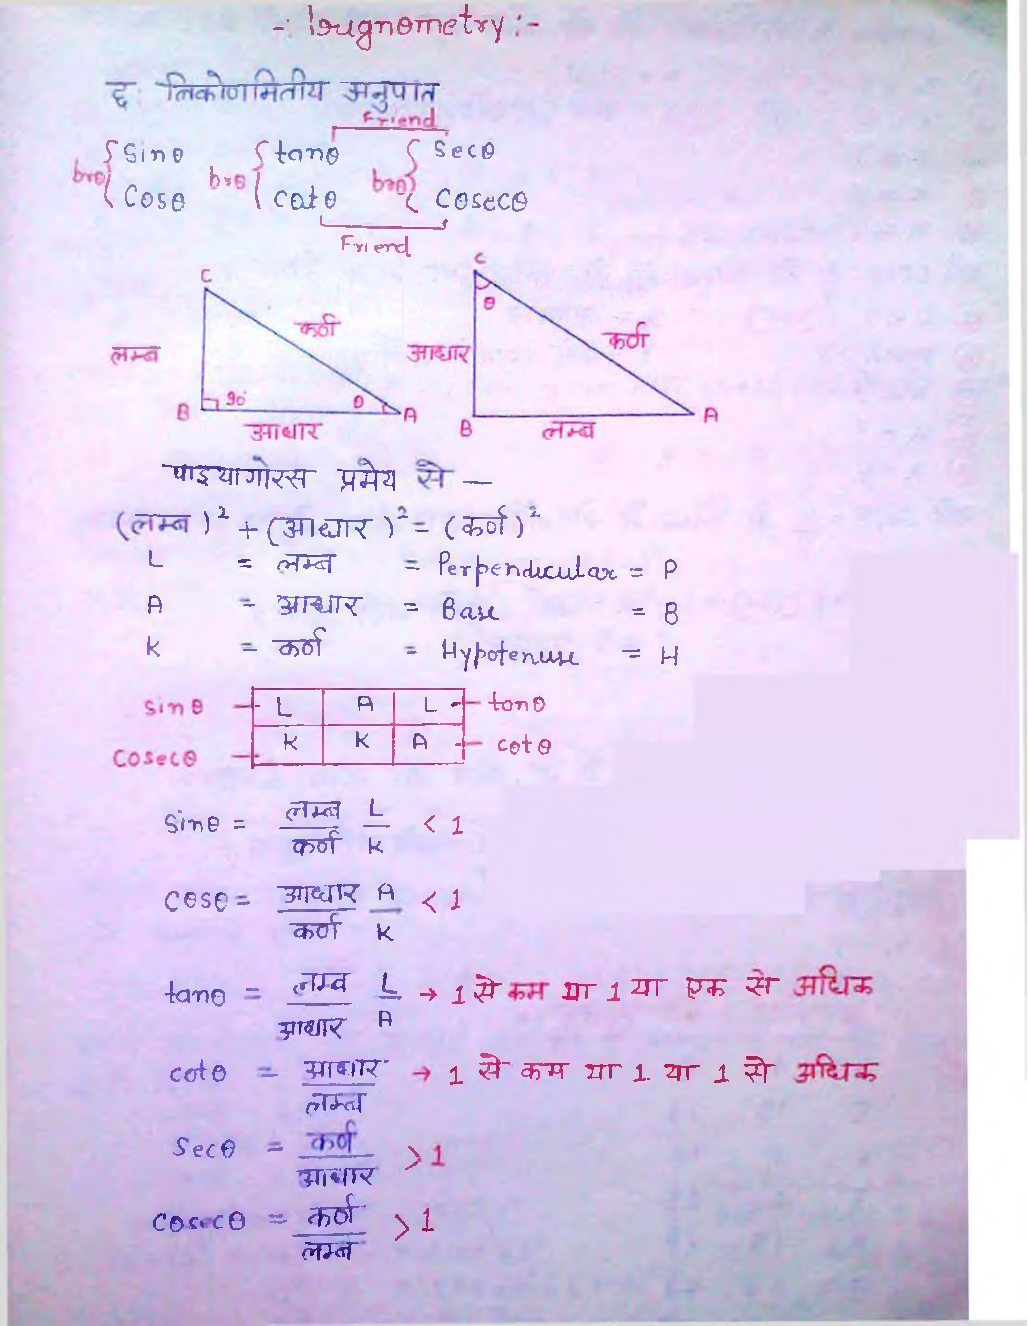 -: Trignometry :-
छ: त्रिकोणमितीय अनुपात
Friend
bro { Sinθ bro { tanθ bro { Secθ
Cosθ cotθ Cosecθ
Friend
C C
θ
कर्ण कर्ण
लम्ब आधार
90° θ
B A B A
आधार लम्ब
पाइथागोरस प्रमेय से —
(लम्ब)² + (आधार)² = (कर्ण)²
L = लम्ब = Perpendicular = P
A = आधार = Base = B
K = कर्ण = Hypotenuse = H
Sinθ L A L tanθ
Cosecθ K K A cotθ
Sinθ = लम्ब/कर्ण L/K < 1
Cosθ = आधार/कर्ण A/K < 1
tanθ = लम्ब/आधार L/A → 1 से कम या 1 या एक से अधिक
cotθ = आधार/लम्ब → 1 से कम या 1 या 1 से अधिक
Secθ = कर्ण/आधार > 1
Cosecθ = कर्ण/लम्ब > 1